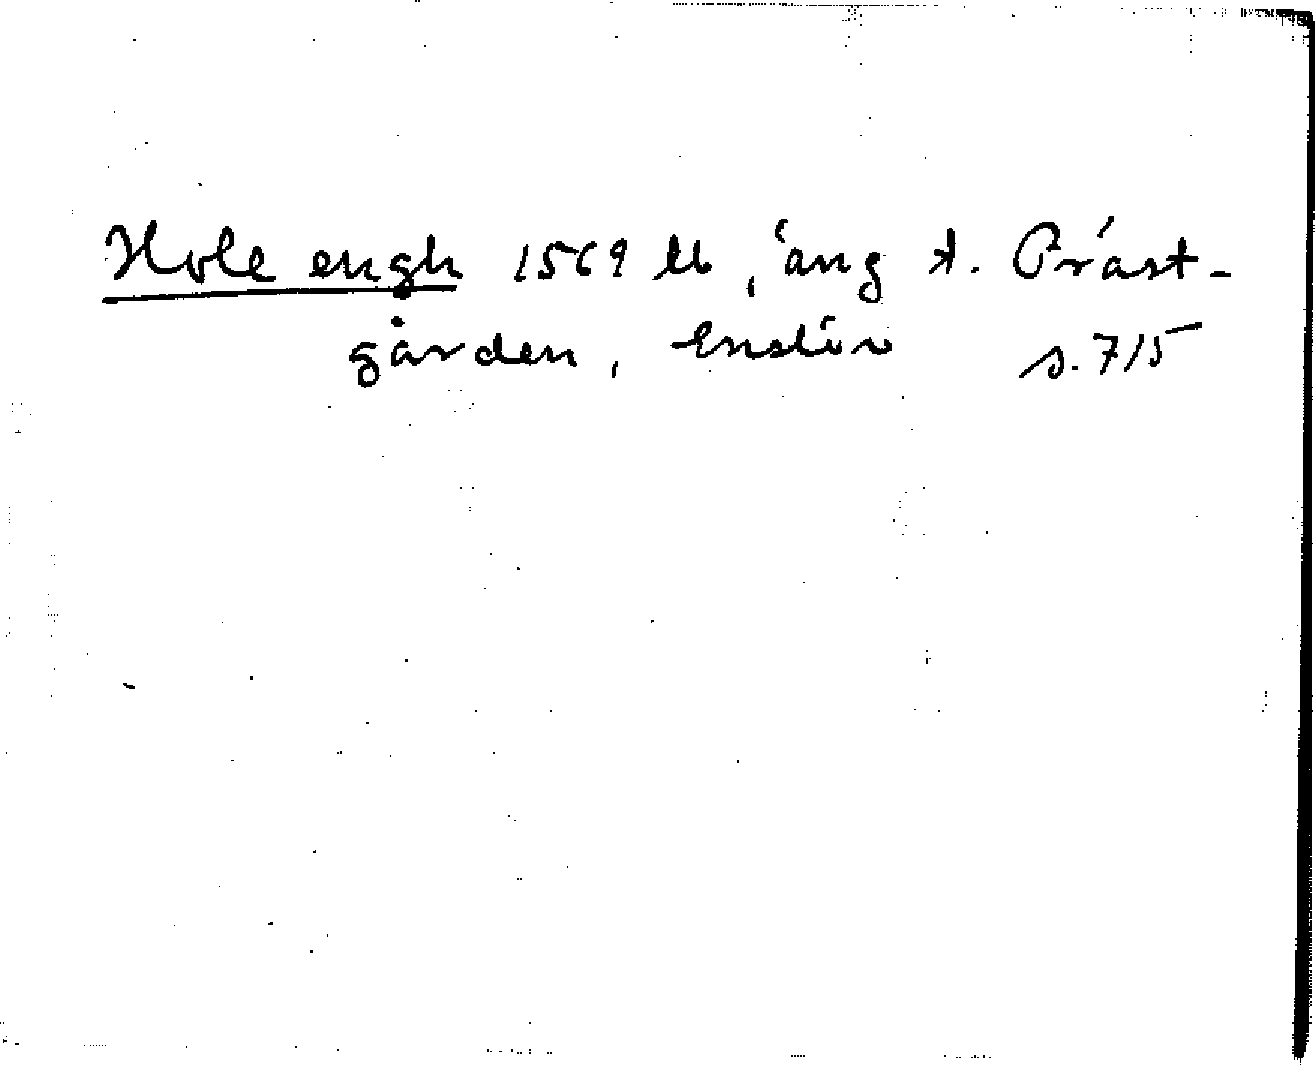 Hole engh 1569 lb, äng t. Präst-
gården, Enslöv s. 715